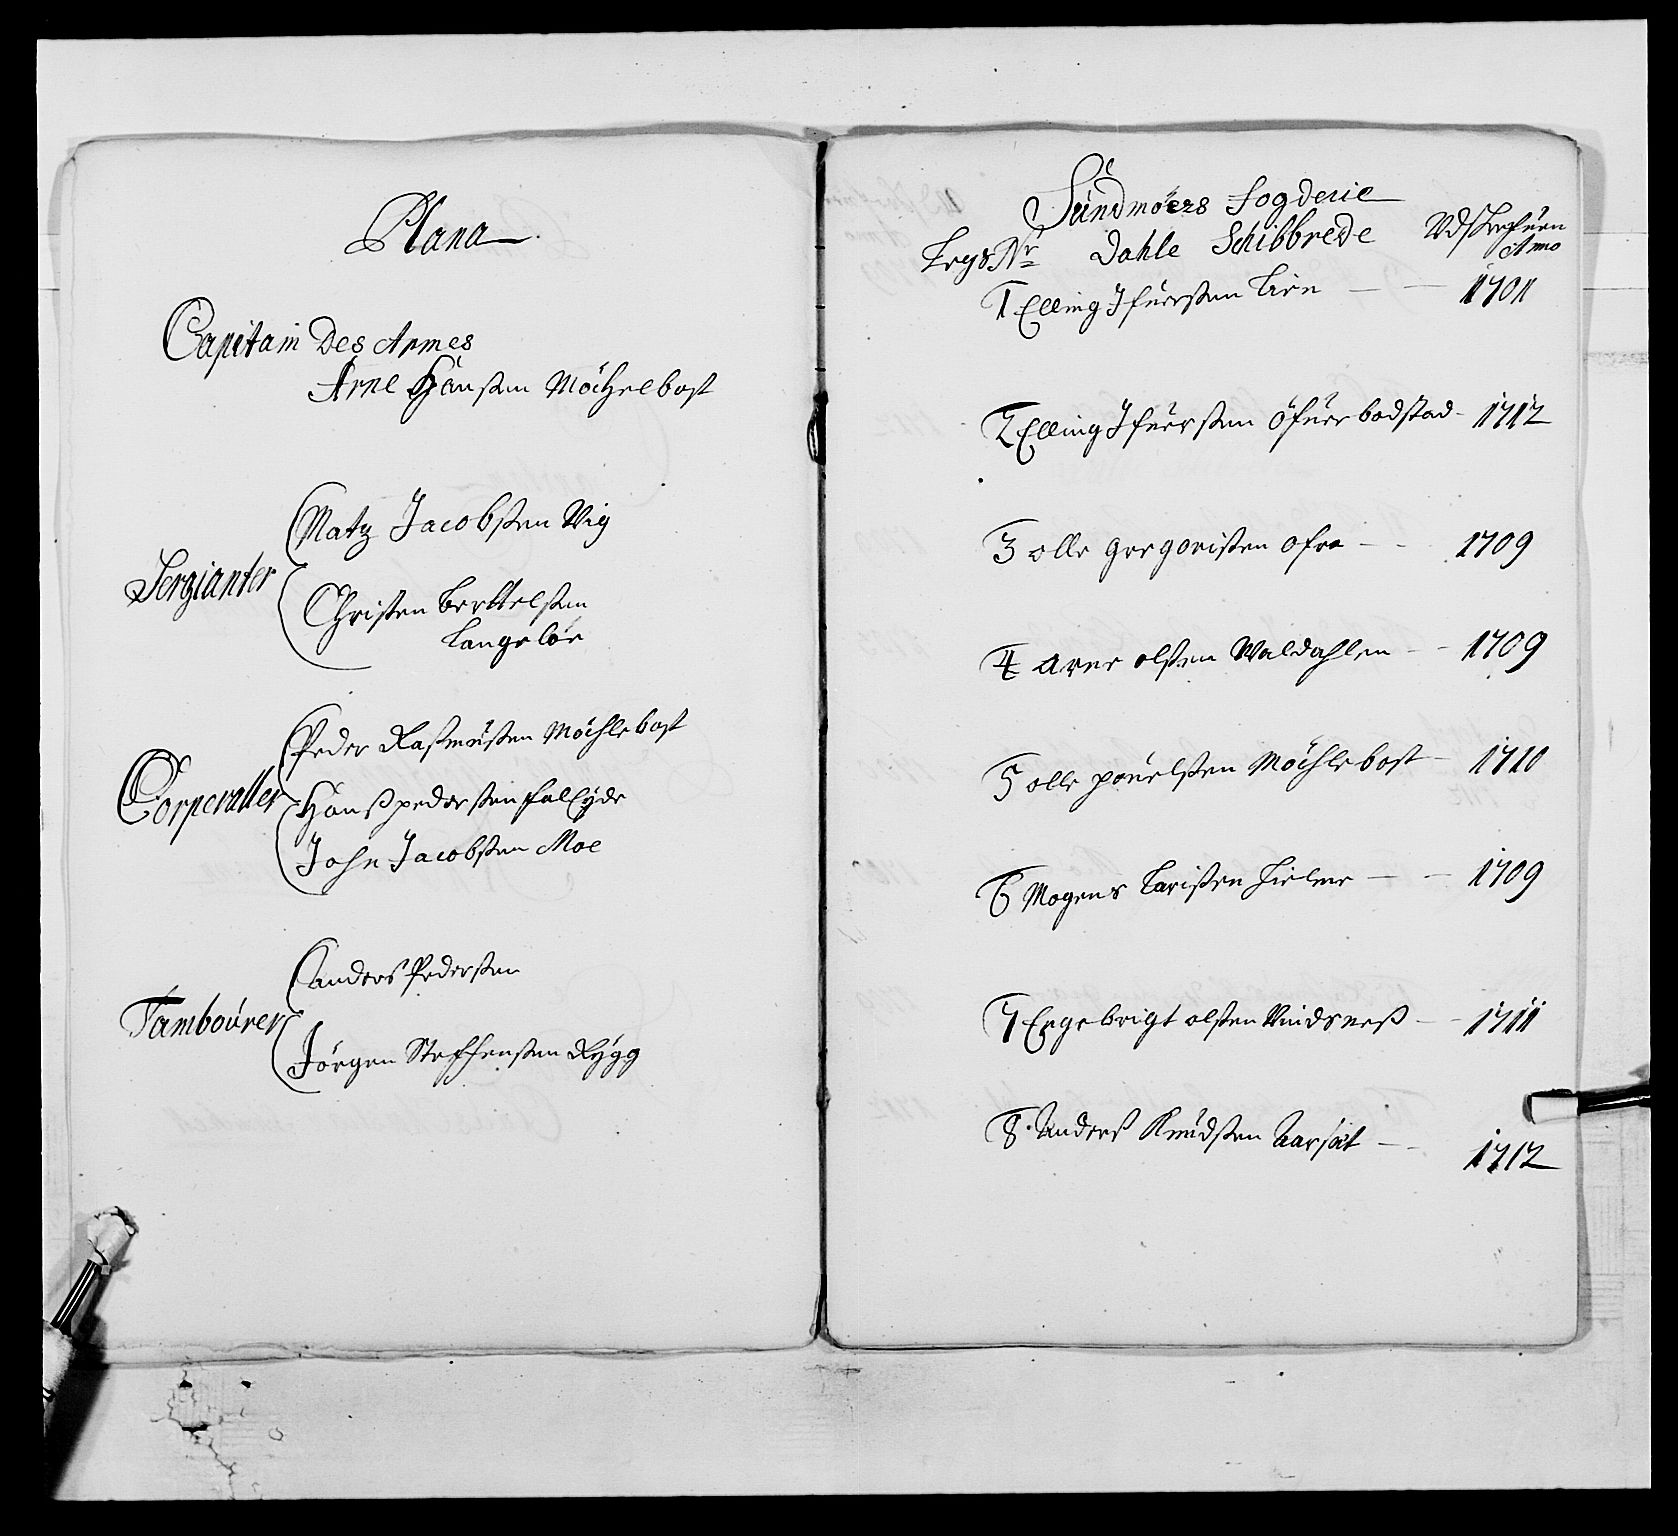 Plana
Capitain Des Armes
Arne Hansen Möchelbost
Sergianter
Matz Jacobsen Vig
Christen Berttelsen
Langeloe
Corperaller
Peder Rasmusen Möchlebost
Hanss pedersen
John Jacobsen Moe
Tambourer
anders Pedersen
Jörgen Steffensen Rygg
Sundmöers Fogderie
Legs Nr Dahle Schibbrede Udskrefuen
Anno
1 Elling Ifuersen Lien 1701
2 Elling Ifuersen öfuerbodstad 1712
3 olle gregorisen ofra 1709
4 arne olsen Waldahlen 1709
5 olle pouelsen Möchlebost 1710
6 Mogens Larisen Hielme 1709
7 Engebrigt olsen Vindsness 1711
8 Anderss Knudsen Aarset 1712